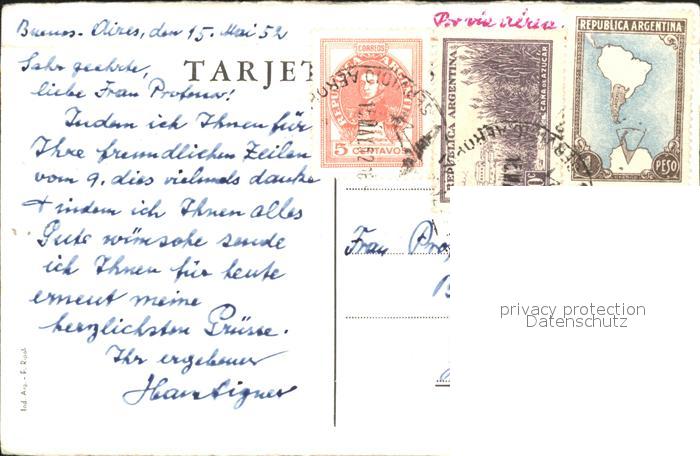 Buenos-Aires, den 15. Mai 52
Sehr geehrte,
liebe Frau Professor!
Indem ich Ihnen für
Ihre freundlichen Zeilen
vom 9. dies vielmals danke
+ indem ich Ihnen alles
Gute wünsche sende
ich Ihnen für heute
erneut meine
herzlichsten Grüsse.
Ihr ergebener
TARJET
Por via aérea.
CORREOS
5 CENTAVOS
REPUBLICA ARGENTINA
CAÑA DE AZUCAR
REPUBLICA ARGENTINA
1 PESO
Frau Pro
privacy protection
Datenschutz
Ind. Arg. - F.